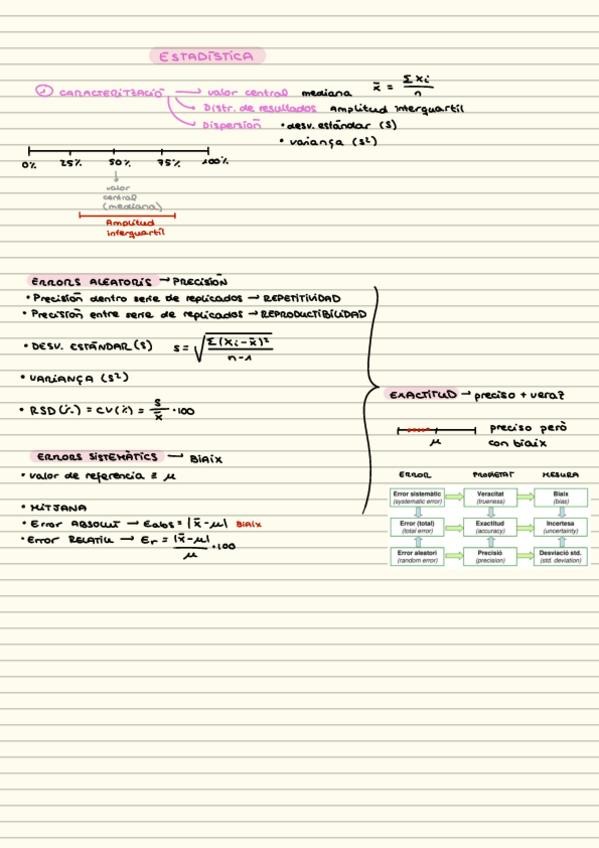 ESTADÍSTICA
① CARACTERITZACIÓ → valor central mediana x̄ = Σxi / n
→ Distr. de resultados Amplitud interquartil
→ Dispersión • desv. estándar (s)
• variança (s²)
0% 25% 50% 75% 100%
valor
central
(mediana)
Amplitud
interquartil
ERRORS ALEATORIS → PRECISIÓN
• Precisión dentro serie de replicados → REPETITIVIDAD
• Precisión entre serie de replicados → REPRODUCTIBILIDAD
• DESV. ESTÁNDAR (s) s = √(Σ(xi - x̄)² / n-1)
• VARIANÇA (s²)
• RSD (%) = CV (%) = s / x̄ · 100
EXACTITUD → preciso + veraz
μ
preciso però
con biaix
ERRORS SISTEMÀTICS → BIAIX
• valor de referència = μ
• MITJANA
• Error ABSOLUT → Eabs = |x̄ - μ| BIAIX
• Error RELATIU → Er = |x̄ - μ| / μ · 100
ERROR PROPIETAT MESURA
Error sistemàtic Veracitat Biaix
(systematic error) (trueness) (bias)
Error (total) Exactitud Incertesa
(total error) (accuracy) (uncertainty)
Error aleatori Precisió Desviació std.
(random error) (precision) (std. deviation)